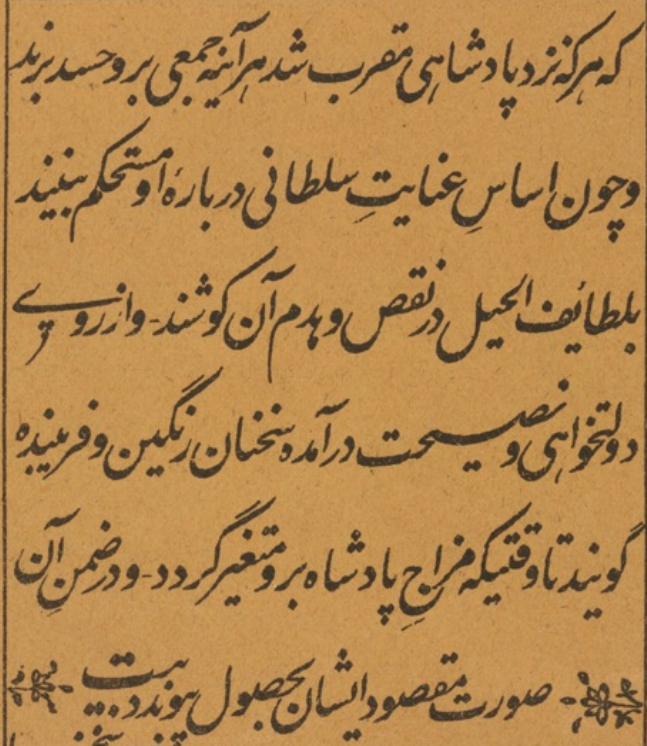 که هرکه نزد پادشاهی مقرب شد هرآینه جمعی برو حسد برند
وچون اساسِ عنایتِ سلطانی دربارهٔ او مستحکم بینند
بلطائف الحیل در نقص و هدم آن کوشند - واز روے
دولتخواهی و نصیحت درآمده سخنان رنگین و فریبنده
گویند تا وقتیکه مزاجِ پادشاه برو متغیر گردد - و در ضمنِ آن
صورت مقصود ایشان بحصول پیوندد بیت